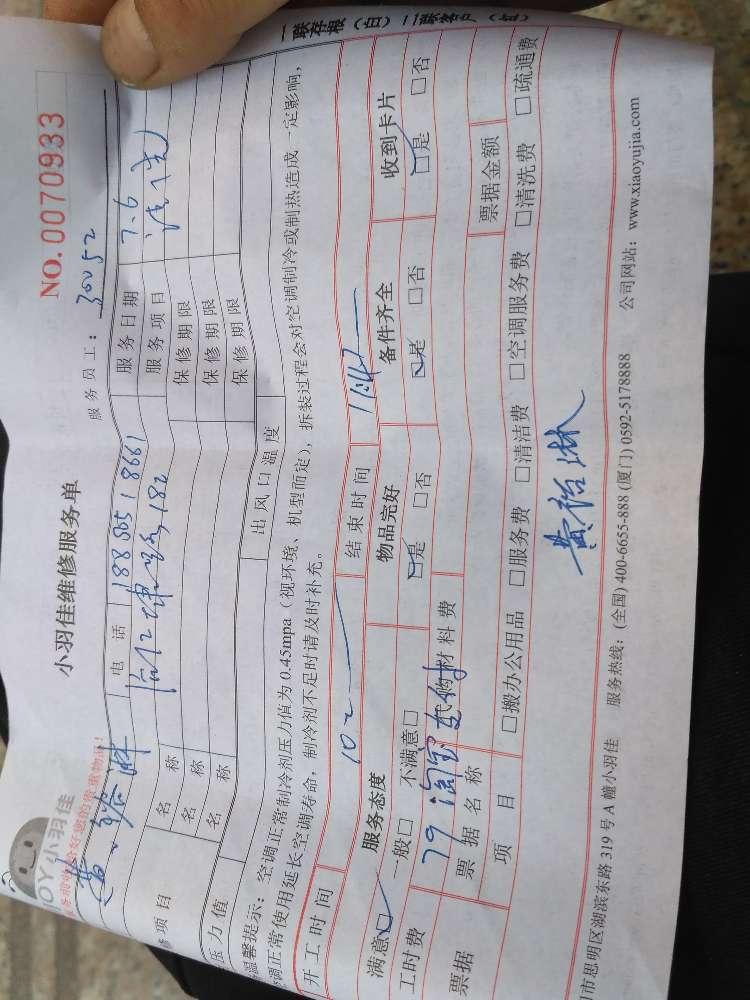 一联存根（白）二联客户（红）
JOY小羽佳
小羽佳维修服务单
NO.0070933
服务员工：30052
电话 18850518661
服务日期 7.6
服务项目
修项目
名称
保修期限
名称
保修期限
名称
保修期限
压力值
出风口温度
温馨提示：空调正常制冷剂压力值为0.45mpa（视环境、机型而定），拆装过程会对空调制冷或制热造成一定影响，
调正常使用延长空调寿命，制冷剂不足时请及时补充。
开工时间
结束时间
服务态度
物品完好
备件齐全
收到卡片
满意□ 一般□ 不满意□
□是 □否
□是 □否
□是 □否
工时费 79 淘宝
材料费
票据
票据名称
票据金额
项目
□搬办公用品 □服务费 □清洁费 □空调服务费 □清洗费 □疏通费
市思明区湖滨东路319号A幢小羽佳 服务热线：(全国) 400-6655-888 (厦门) 0592-5178888 公司网站：www.xiaoyujia.com